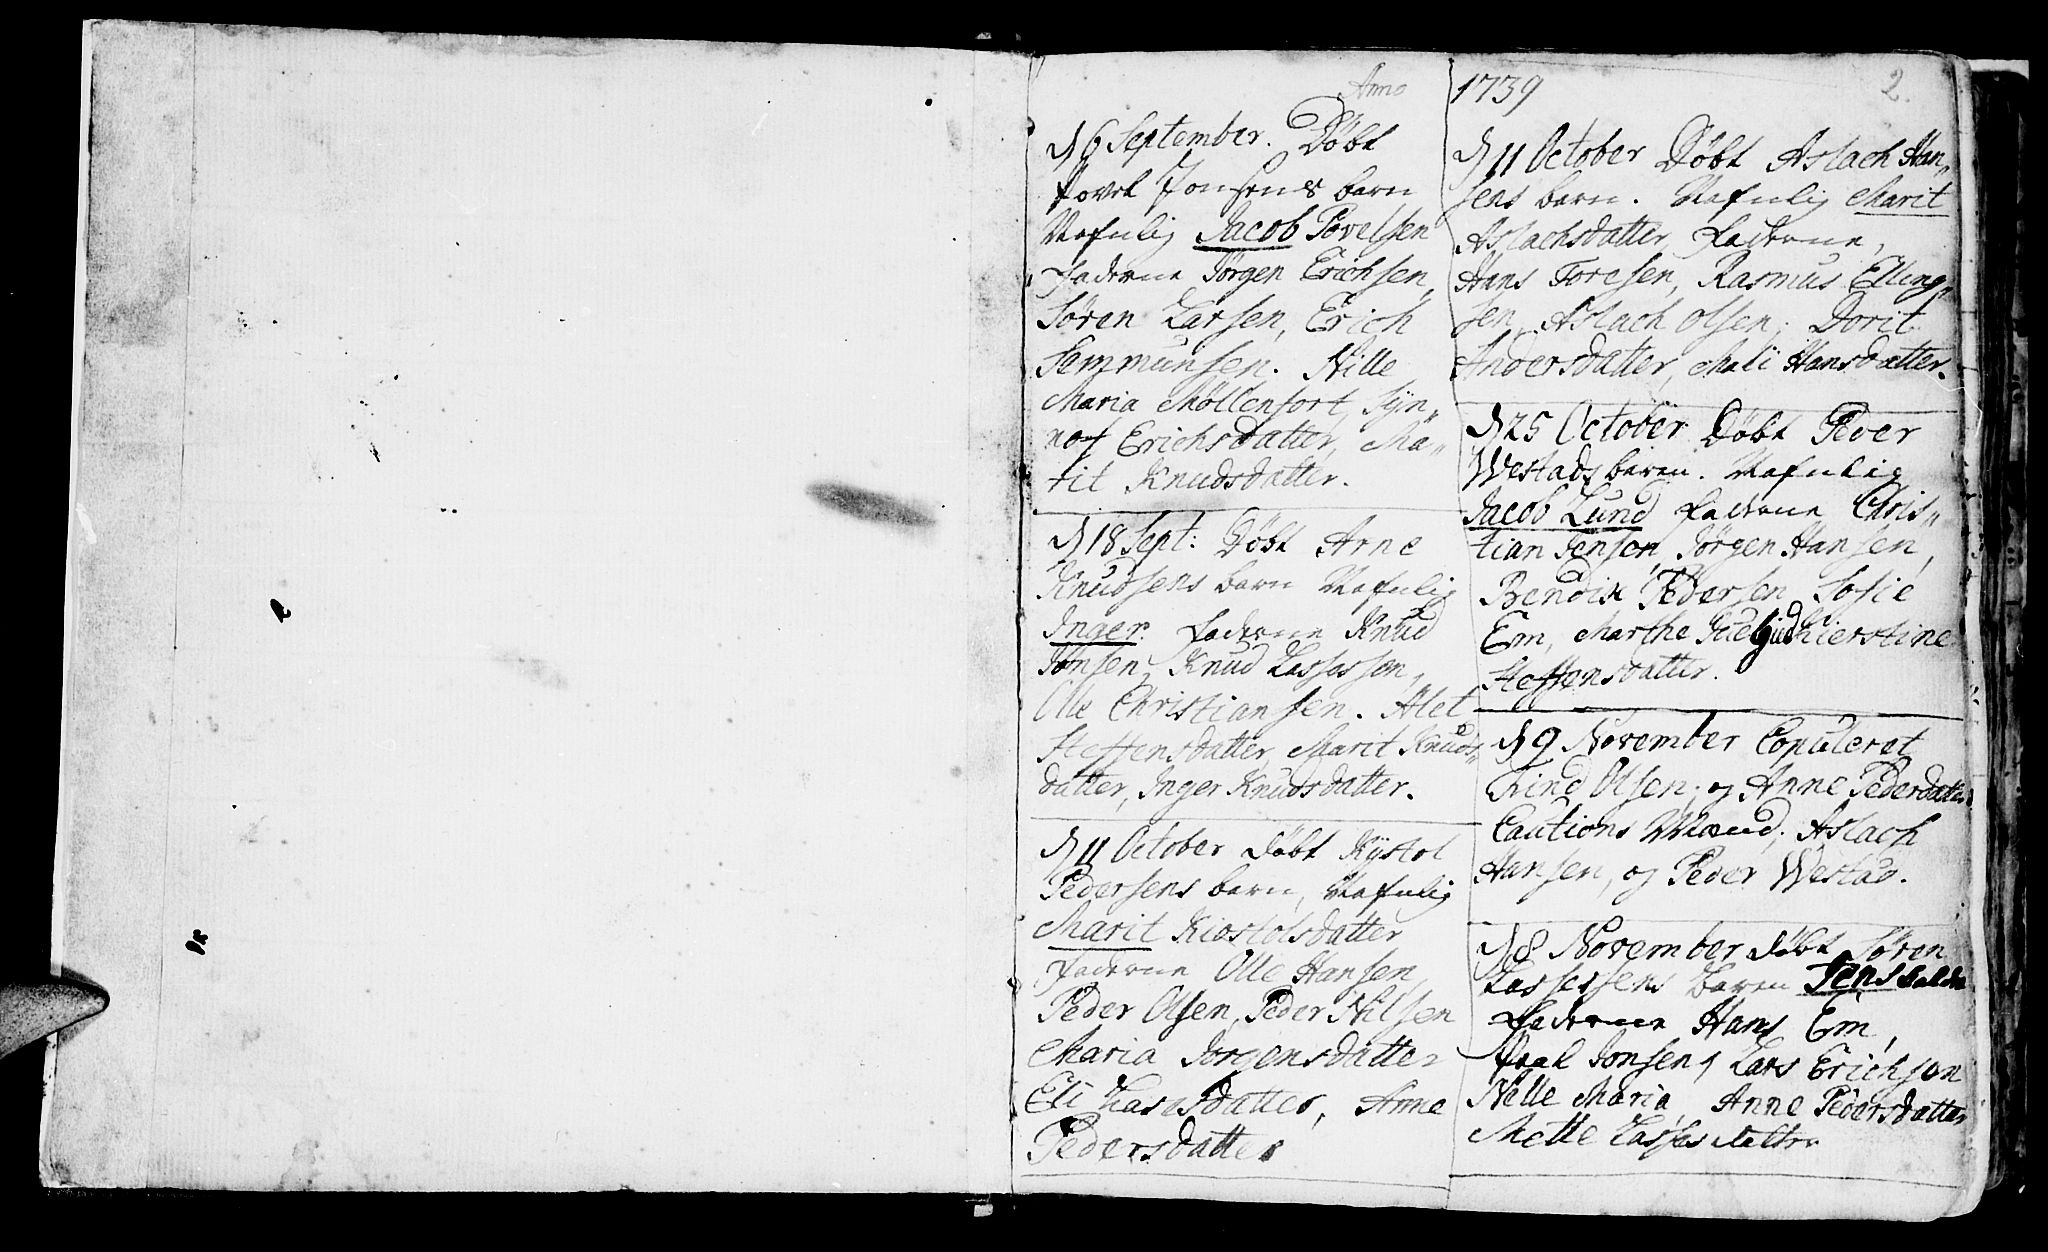 Anno 1739
2.
d 6 September. Döbt
Povel Jonsens barn
Nafnlig Jacob Povelsen
Faderne Jörgen Erichsen,
Sören Larsen, Erich
Sammunsen. Nille
Maria Möllenfort, Syn„
nof Erichsdatter, Ma„
rit Knudsdatter.
d 18 Sept: Döbt Arne
Knudsens barn Nafnlig
Inger. Faderne Knud
Jonsen, Knud Lassessen,
Olle Christiansen. Alet
Steffensdatter, Marit Knuds„
datter, Inger Knudsdatter.
d 11 October döbt Kystol
Pedersens barn, Nafnlig
Marit Kiostolsdatter
Faderne Olle Hansen,
Peder Olsen, Peder Nilsen
Maria Jorgensdatter
Eli Lassesdatter, Anne
Pedersdatter
d 11 October Döbt Aslach Han„
sens barn. Nafnlig Marit
Aslachsdatter, Faderne,
Hans Toresen, Rasmus Elling„
sen, Aslach Olsen, Dorit
Andersdatter, Mali Hansdatter.
d 25 October Döbt Peder
Westads barn. Nafnlig
Jacob Lund Faderne Chris„
tian Jensen, Jörgen Hansen,
Bendix Pedersen Sofie
Em, Marthe Kierstine
Steffensdatter.
d 9 November Copuleret
Trind Olsen, og Anne Pedersdatter
Cautions Mænd, Aslach
Hansen, og Peder Westad.
d 8 November döbt Sören
Lassessens barn Jens kaldet
Faderne Hans Em,
Povel Jonsen, Lars Erichsen
Nelle Maria, Anne Pedersdatter
Mette Lassesdatter